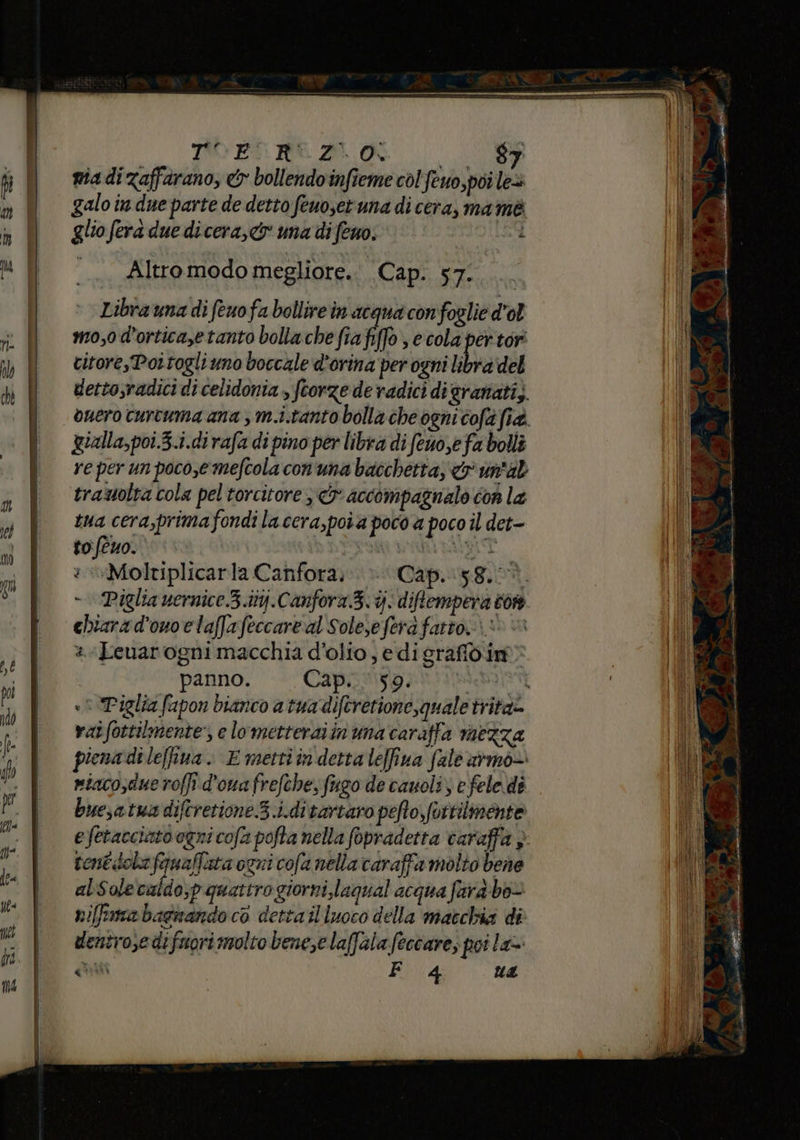 TERZO. 87
nia di zaffarano, & bollendo insieme col seuo, poi le=
galo in due parte de detto seuo, et una di cera, ma me
glio serà due di cera, & una di seuo.
Altro modo megliore. Cap. 57.
Libra una di seuo fa bollire in acqua con foglie d'ol
mo, o d'ortica, e tanto bolla che sia fisso, e cola per tor
citore, Poi togli uno boccale d'orina per ogni libra del
detto, radici di celidonia, scorze de radici di granati,
ouero curcuma ana ʒ m.i. tanto bolla che ogni cosa sia
gialla, poi.ʒ.i. di rasa di pino per libra di seuo, e fa bolli
re per un poco, e mescola con una bacchetta, & un'al
trauolta cola pel torcitore, & accompagnalo con la
tua cera, prima fondi la cera, poi a poco a poco il det-
to seuo.
Moltiplicar la Canfora. Cap. 58.
Piglia uernice.ʒ.iiij. Canfora.ʒ.ij. distempera con
chiara d'ouo e lassa seccare al Sole, e serà fatto.
Leuar ogni macchia d'olio, e di grasso in
panno. Cap. 59.
Piglia sapon bianco a tua discretione, quale trita-
rai sottilmente, e lo metterai in una caraffa mezza
piena di lessiua. E metti in detta lessiua sale armo-
niaco, due rossi d'oua fresche, sugo de cauoli, e fele di
bue, a tua discretione.ʒ.i. di tartaro pesto, sottilmente
e setacciato ogni cosa posta nella sopradetta caraffa,
tenēdola squassata ogni cosa nella caraffa molto bene
al Sole caldo, p quattro giorni, laqual acqua sarà bo-
nissima bagnando cō detta il luoco della macchia di
dentro, e di fuori molto bene, e lassala seccare, poi la-
F 4 ua